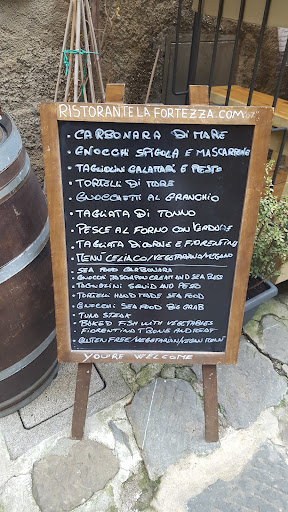 RISTORANTE LA FORTEZZA.COM
CARBONARA DI MARE
GNOCCHI SPIGOLA E MASCARPONE
TAGLIOLINI CALAMARI E PESTO
TORTELLI DI MARE
GNOCCHETTI AL GRANCHIO
TAGLIATA DI TONNO
PESCE AL FORNO CON VERDURE
TAGLIATA DI CARNE E FIORENTINA
MENU CELIACO/VEGETARIANO/VEGANO
SEA FOOD CARBONARA
GNOCCHI MASCARPON CREAM AND SEA BASS
TAGLIOLINI SQUID AND PESTO
TORTELLI HAND MADE SEA FOOD
GNOCCHI SEA FOOD BIG CRAB
TUNA STEAK
BAKED FISH WITH VEGETABLES
FIORENTINA T BONE AND BEEF
GLUTEN FREE/VEGETARIAN/VEGAN MENU
YOU'RE WELCOME